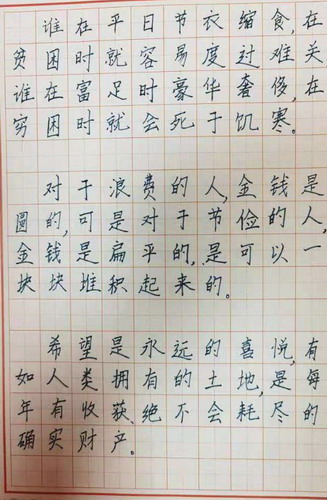 谁在平日节衣缩食,在
贫困时就容易度过难关
谁在富足时豪华奢侈,在
穷困时就会死于饥寒。
对于浪费的人,金钱是
圆的,可是对于节俭的人,
金钱是扁平的,是可以一
块块堆积起来的。
希望是永远的喜悦,有
如人类拥有的土地,是每
年有收获、绝不会耗尽的
确实财产。